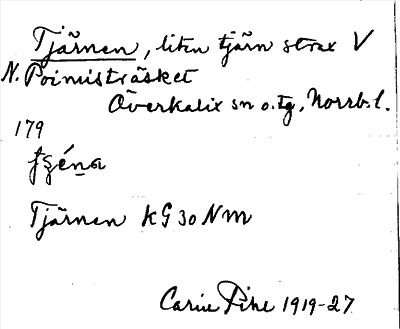 Tjärnen, liten tjärn strax V
N. Poimisträsket
Överkalix sn o. tg, Norrb. l.
179
Tjärnen KG 30 NM
Carin Pihl 1919-27